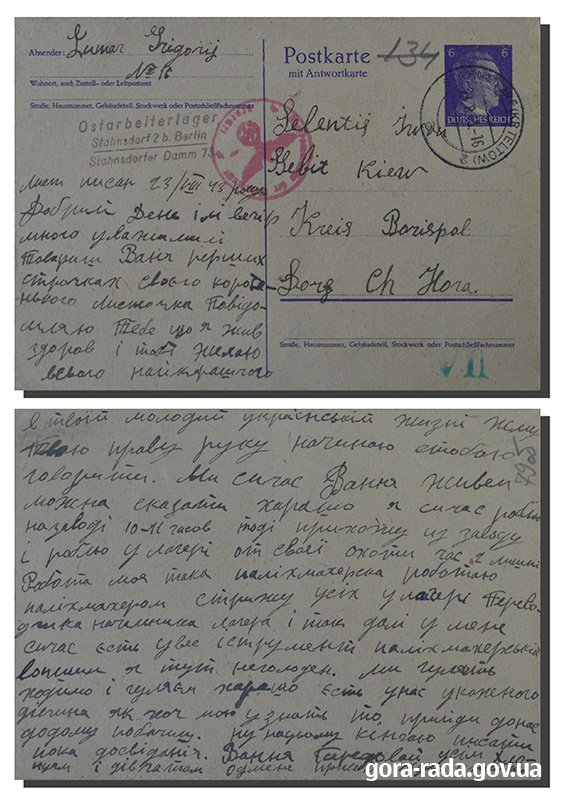 Absender: Lumar Grigorij
№ 16
Wohnort, auch Zustell- oder Leitpostamt
Straße, Hausnummer, Gebäudeteil, Stockwerk oder Postschließfachnummer
Ostarbeiterlager
Stahnsdorf 2 b. Berlin
Stahnsdorfer Damm 73
Лист писан 23/VIII 43 року
Добрий День і ли вечір
много уважаший
Товариш Ваня перших
строчках своего коротенького
листочка Повідомляю
Тебе що я жив
здоров і тобі желаю
всього найкращчого
Postkarte 134
mit Antwortkarte
6 6
DEUTSCHES REICH
(KR TELTOW)
Selentij Iwan
Gebit Kiew
Kreis Borispol
Dorg Ch Hora.
Straße, Hausnummer, Gebäudeteil, Stockwerk oder Postschließfachnummer
VII
в твоій молодий українській жизні жму
твою праву руку начинаю стобою
говорити. Ми сичас Ваня живем
можна сказати харашо я сичас роблю
на заводі 10-11 часов тоді прихожу из заводу
і роблю у лагері от своєй охоти час 2
Робота моя така паліхмахерска работаю
паліхмахером стрижу усіх у лагері
начилника лагера і так далі у мене
сичас єсть увес іструмент паліхмахерський
я тут неголоден. Ми гулять
ходимо і гуляєм харашо єсть у нас
дівчина як хоч мою узнать то приїди до нас
додому побачиш. ну кінчаю писати
пока досвіданія. Ваня усім
і дівчатам
gora-rada.gov.ua